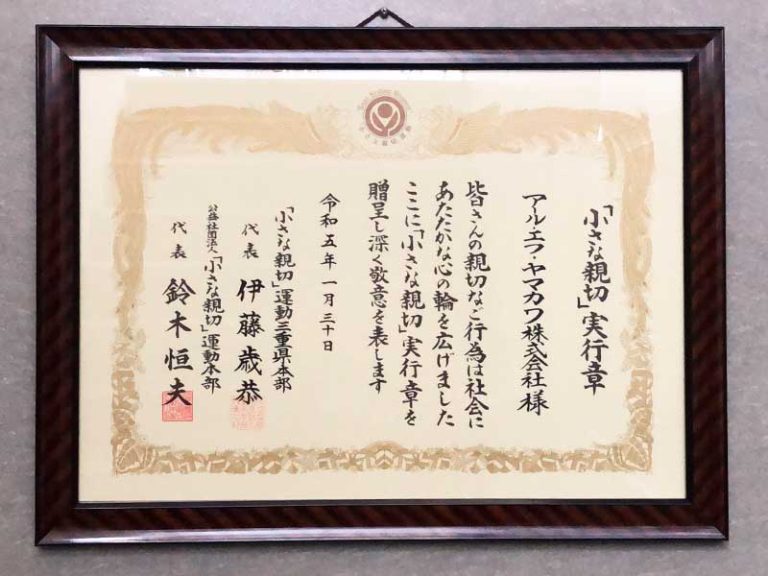 「小さな親切」実行章
アルエフ・ヤマカワ株式会社 様
皆さんの親切なご行為は社会に
あたたかな心の輪を広げました
ここに「小さな親切」実行章を
贈呈し深く敬意を表します
令和五年一月三十日
「小さな親切」運動三重県本部
代表 伊藤歳恭
公益社団法人「小さな親切」運動本部
代表 鈴木恒夫